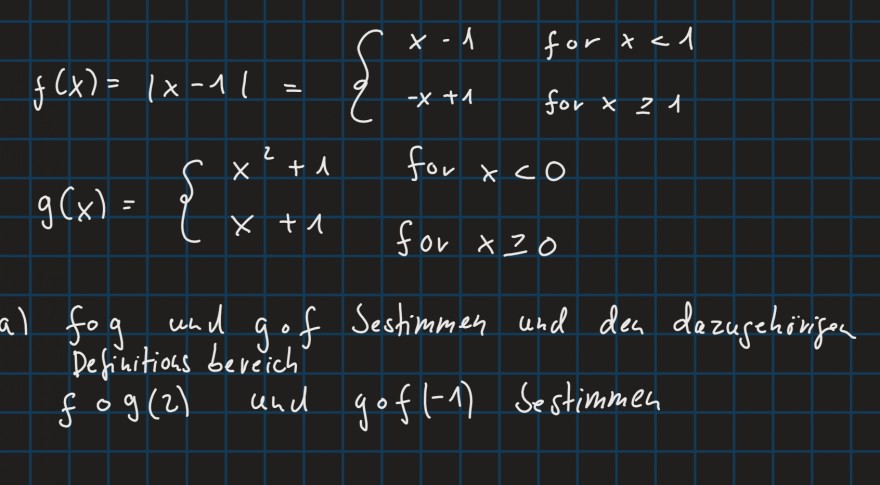 f(x) = |x-1| = { x - 1 for x < 1
-x + 1 for x ≥ 1
g(x) = { x² + 1 for x < 0
x + 1 for x ≥ 0
a) f∘g und g∘f bestimmen und den dazugehörigen
Definitions bereich
f∘g(2) und g∘f(-1) bestimmen